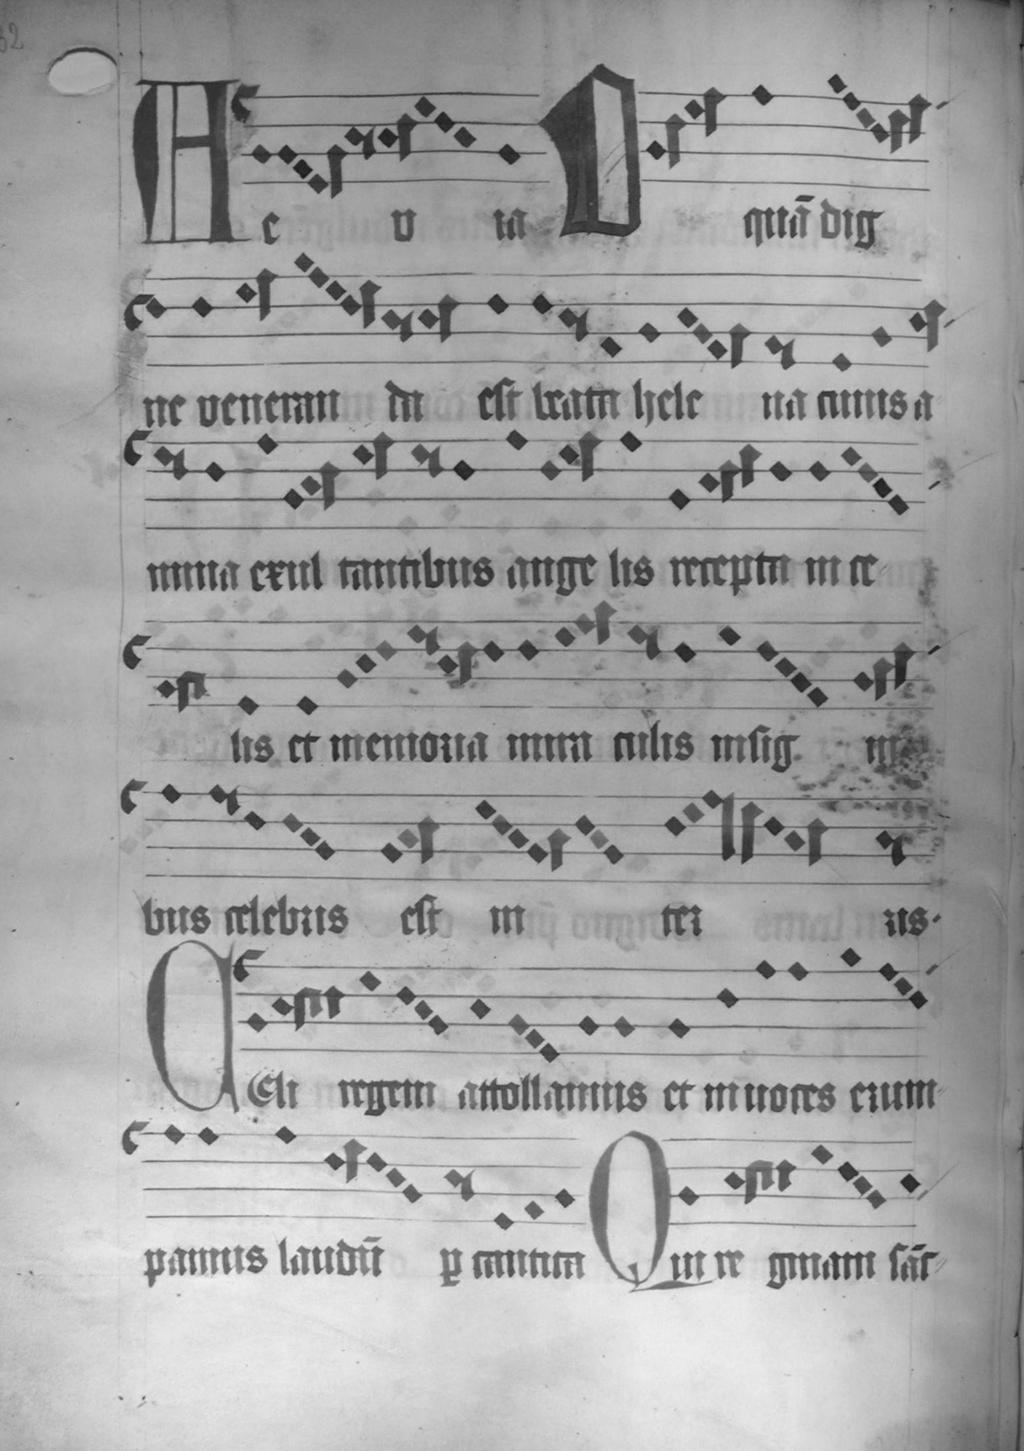 A e v ia O quā dig
ne veneran da est beata hele na cuius a
nima exul tantibus ange lis recepta in ce
lis et memoria mira culis insig ni
bus celebris est in ter ris.
CEli regem attollamus et in uoces erum
pamus laudū ꝑ cantica Qui re ginam sāc